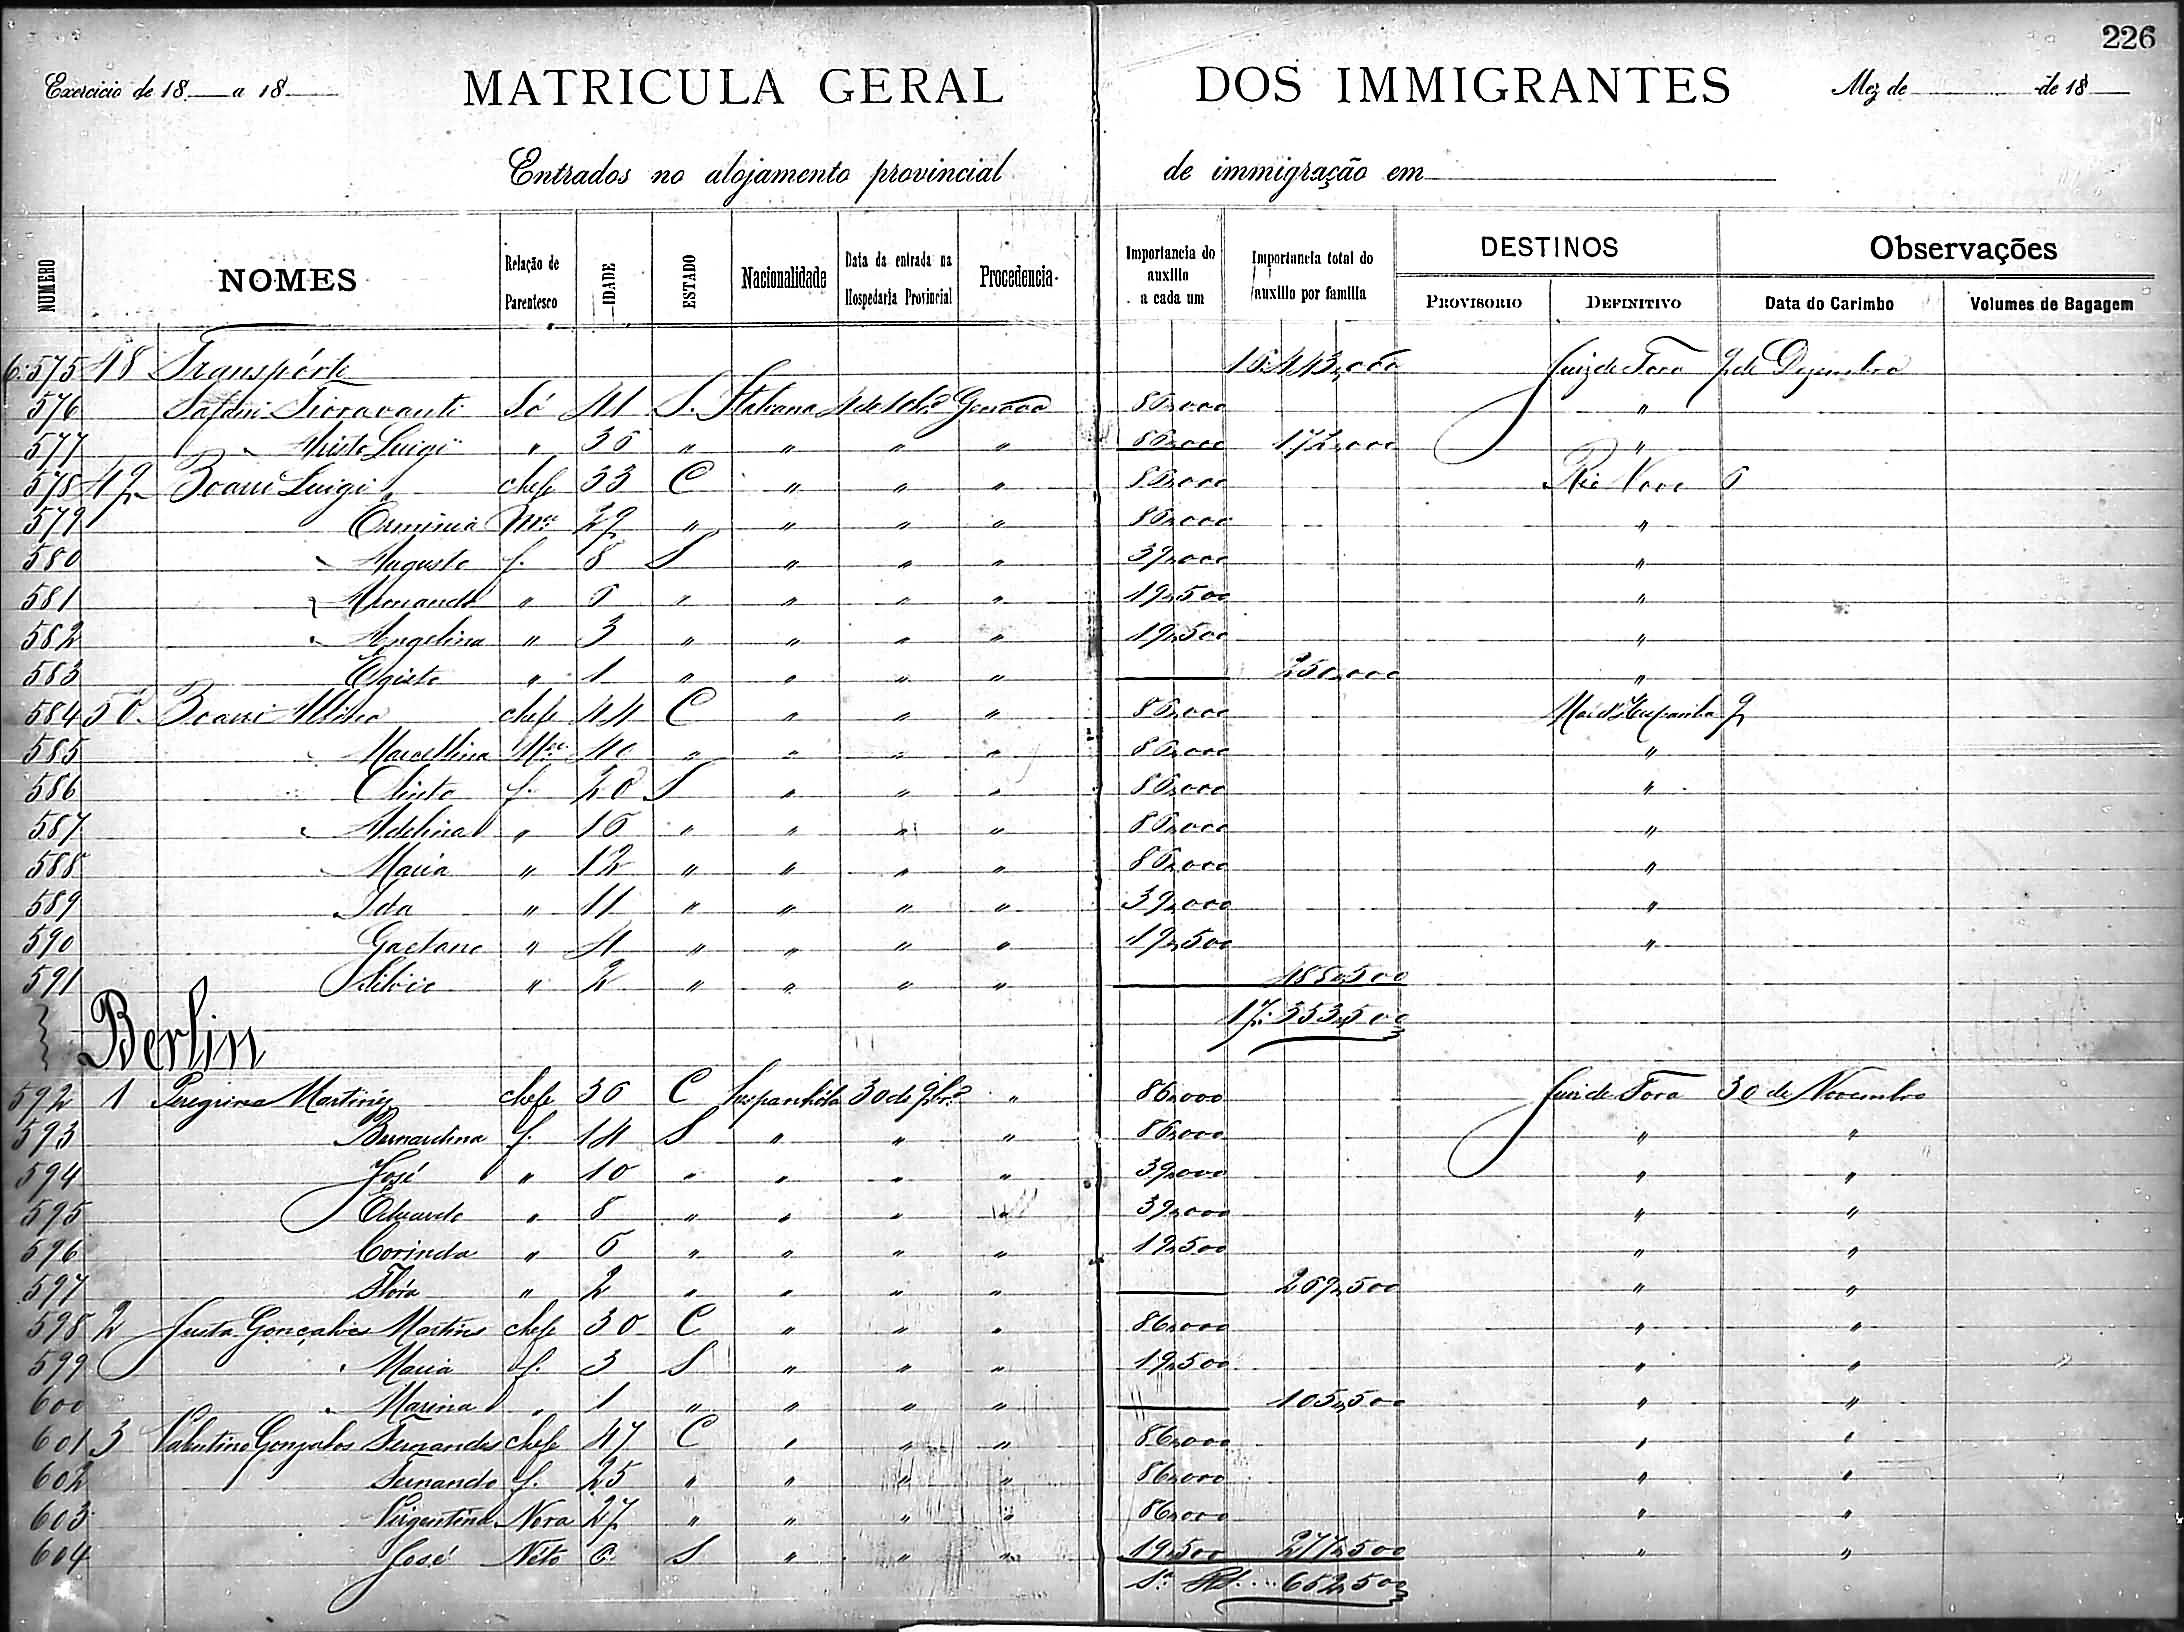 226
Exercicio de 18 a 18
MATRICULA GERAL DOS IMMIGRANTES
Mez de de 18
Entrados no alojamento provincial de immigração em
NUMERO NOMES Relação de Parentesco IDADE ESTADO Nacionalidade Data da entrada na Hospedaria Provincial Procedencia Importancia do auxilio a cada um Importancia total do auxilio por familia DESTINOS Observações
PROVISORIO DEFINITIVO Data do Carimbo Volumes de Bagagem
6:575 48 Transpórte 16:443,000 Juiz de Fora 9 de Dezembro
576 Fioravanti Só 41 S. Italiana Genova 86,000 "
577 " Luigi " 36 " " " " 86,000 172,000 "
578 49 Boani Luigi chefe 33 C " " " 86,000 Rio Novo 6
579 " Erminia Mer 29 " " " " 86,000 "
580 " Augusto f. 8 S " " " 39,000 "
581 " " 6 " " " " 19,500 "
582 " Angelina " 3 " " " " 19,500 "
583 Egisto " 1 " " " " 250,000 "
584 50 Boani chefe 44 C " " " 86,000 Mar d'Hespanha 9
585 " Marcellina Mer 40 " " " " 86,000 "
586 " Olinto f. 20 S " " " 86,000 "
587 " Adelina " 16 " " " " 86,000 "
588 " Maria " 12 " " " " 86,000 "
589 Ida " 11 " " " " 39,000 "
590 Gaetano " 4 " " " " 19,500 "
591 Silvio " 2 " " " " 488,500
17:353,500
Berlin
592 1 Peregrina Martinez chefe 36 C Hespanhóla 30 de 9bro " 86,000 Juiz de Fora 30 de Novembro
593 Bernardina f. 14 S " " " 86,000 " "
594 José " 10 " " " " 39,000 " "
595 Eduardo " 8 " " " " 39,000 " "
596 Corinda " 6 " " " " 19,500 " "
597 Flóra " 2 " " " " 269,500 " "
598 2 Justa Gonçalves Martins chefe 30 C " " " 86,000 " "
599 " Maria f. 3 S " " " 19,500 " "
600 " Marina " 1 " " " " 105,500 " "
601 3 Valentino Gonzales Fernandes chefe 47 C " " " 86,000 " "
602 Fernando f. 25 " " " " 86,000 " "
603 Nora 27 " " " " 86,000 " "
604 José Néto 6 S " " " 19,500 277,500 " "
652,500